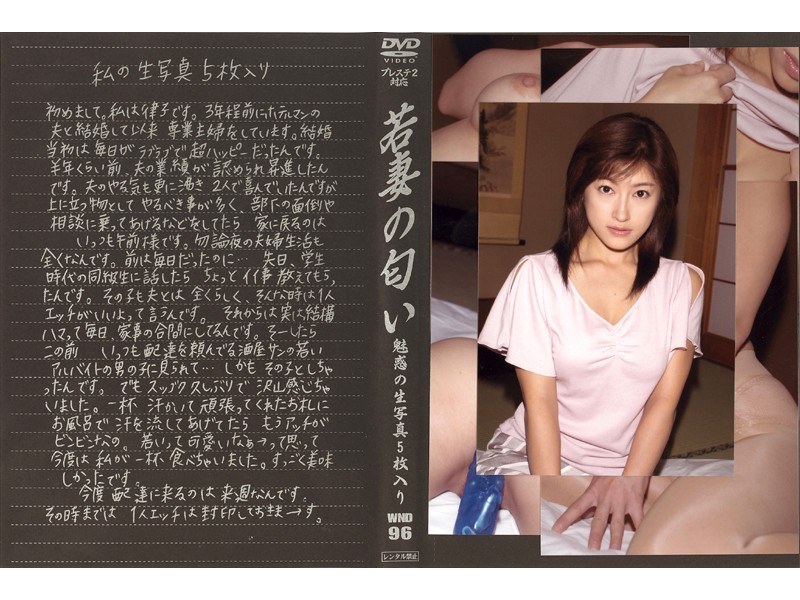 私の生写真5枚入り
初めまして。私は律子です。3年程前にホテルマンの
夫と結婚して以来 専業主婦をしています。結婚
当初は毎日がラブラブで超ハッピーだったんです。
半年くらい前、夫の業績が認められ昇進したん
です。夫のやる気も更に湧き 2人で喜んでいたんですが
上に立つ物としてやるべき事が多く、部下の面倒や
相談に乗ってあげるなどをしてたら 家に戻るのは
いっつも午前様です。勿論夜の夫婦生活も
全くなんです。前は毎日だったのに… 先日、学生
時代の同級生に話したら ちょっとイイ事 教えてもらっ
たんです。その子も夫とは全くらしく、そんな時は1人
エッチがいいよって言うんです。それからは実は結構
ハマって毎日、家事の合間にしてるんです。そーしたら
この前 いっつも配達を頼んでる酒屋サンの若い
アルバイトの男の子に見られて… しかも その子としちゃ
ったんです。でもスッゴク久しぶりで 沢山感じちゃ
いました。一杯 汗かいて頑張ってくれたお礼に
お風呂で汗を流してあげてたら もうアッチが
ビンビンなの。若いって可愛いなぁ→って思って
今度は私が一杯食べちゃいました。すっごく美味
しかったです。
今度 配達に来るのは来週なんです。
その時までは 1人エッチは封印しておきま→す。
DVD
VIDEO
プレステ2
対応
若妻の匂い
魅惑の生写真5枚入り
WND
96
レンタル禁止